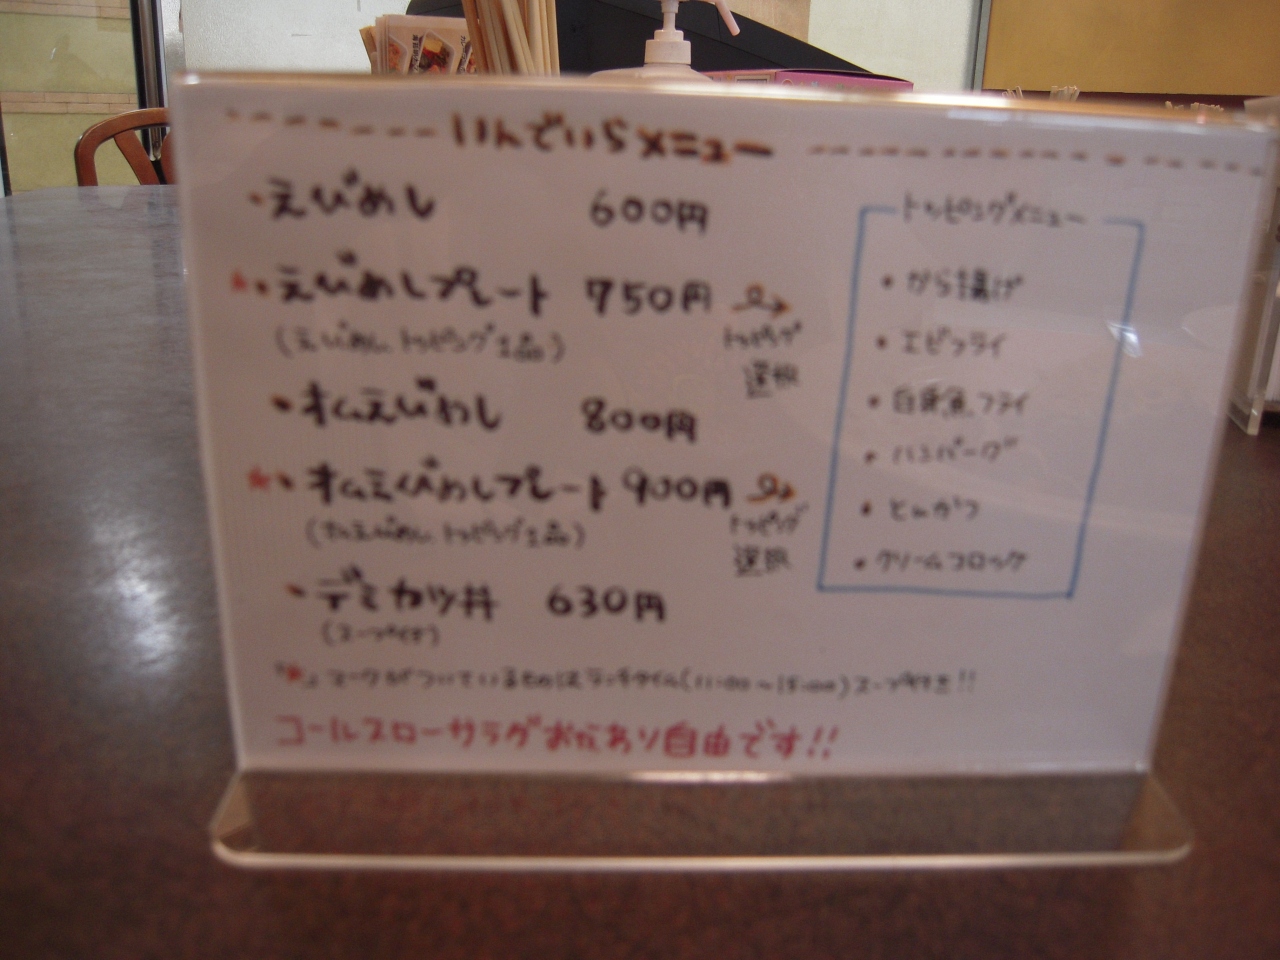 いんでいらメニュー
・えびめし 600円
★・えびめしプレート 750円
トッピング
選択
(えびめし、トッピング1品)
・オムえびめし 800円
★・オムえびめしプレート 900円
トッピング
選択
(オムえびめし、トッピング1品)
・デミカツ丼 630円
(スープ付き)
「★」マークがついているものはランチタイム(11:00〜15:00)スープ付き!!
コールスローサラダおかわり自由です!!
トッピングメニュー
・から揚げ
・エビフライ
・白身魚フライ
・ハンバーグ
・とんかつ
・クリームコロッケ